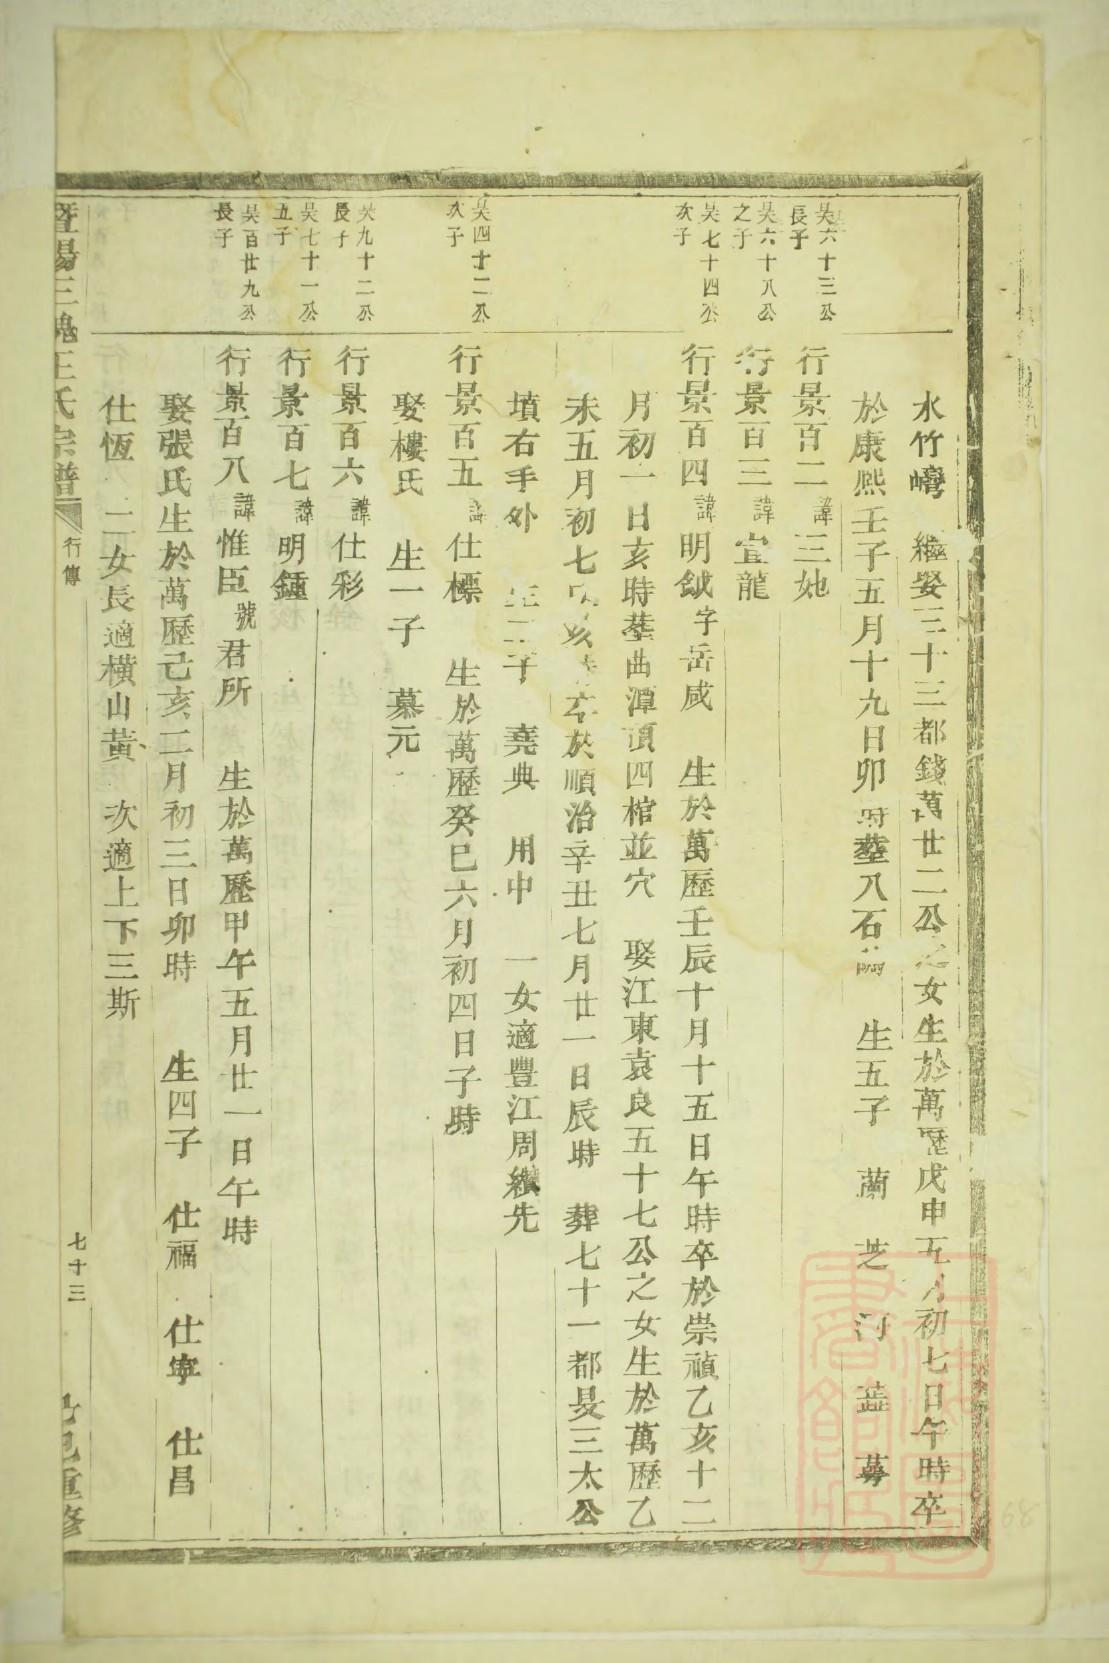 水竹灣 繼娶三十三都錢萬廿二公之女生於萬歷戊申五月初七日午時卒
於康熙壬子五月十九日卯時葬八石 生五子 蘭 芝 河 蕚
吳六十三公
長子
行景百二諱三她
吳六十八公
之子
行景百三諱宜龍
吳七十四公
次子
行景百四諱明鉞字岳咸 生於萬歷壬辰十月十五日午時卒於崇禎乙亥十二
月初一日亥時葬曲潭頂四棺並穴 娶江東袁良五十七公之女生於萬歷乙
未五月初七日亥時卒於順治辛丑七月廿一日辰時 葬七十一都旻三太公
墳右手外 生二子 堯典 用中 一女適豐江周繼先
吳四十二公
次子
行景百五諱仕標 生於萬歷癸巳六月初四日子時
娶樓氏 生一子 慕元
吳九十二公
長子
行景百六諱仕彩
吳七十一公
五子
行景百七諱明鍾
吳百廿九公
長子
行景百八諱惟臣號君所 生於萬歷甲午五月廿一日午時
娶張氏生於萬歷己亥二月初三日卯時 生四子 仕福 仕寧 仕昌
仕恆 二女長適橫山黃 次適上下三斯
暨陽三槐王氏宗譜 行傳 七十三 重修